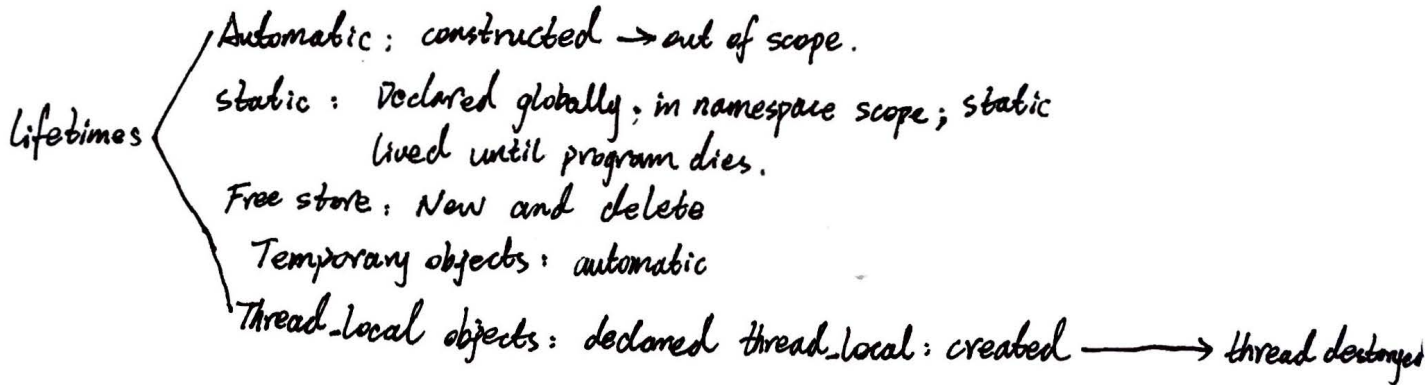 Automatic: constructed → out of scope.
static: Declared globally; in namespace scope; static
lifetimes
lived until program dies.
Free store: New and delete
Temporary objects: automatic
Thread_local objects: declared thread_local: created → thread destroyed